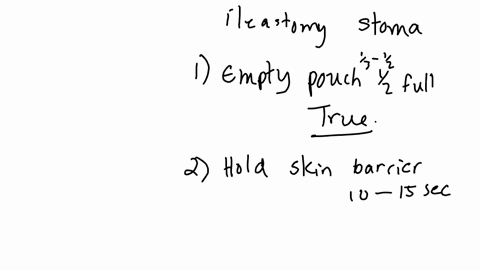 ileastomy stoma
1) Empty pouch 1/3 - 1/2 1/2 full
True.
2) Hold skin barrier
10 - 15 sec